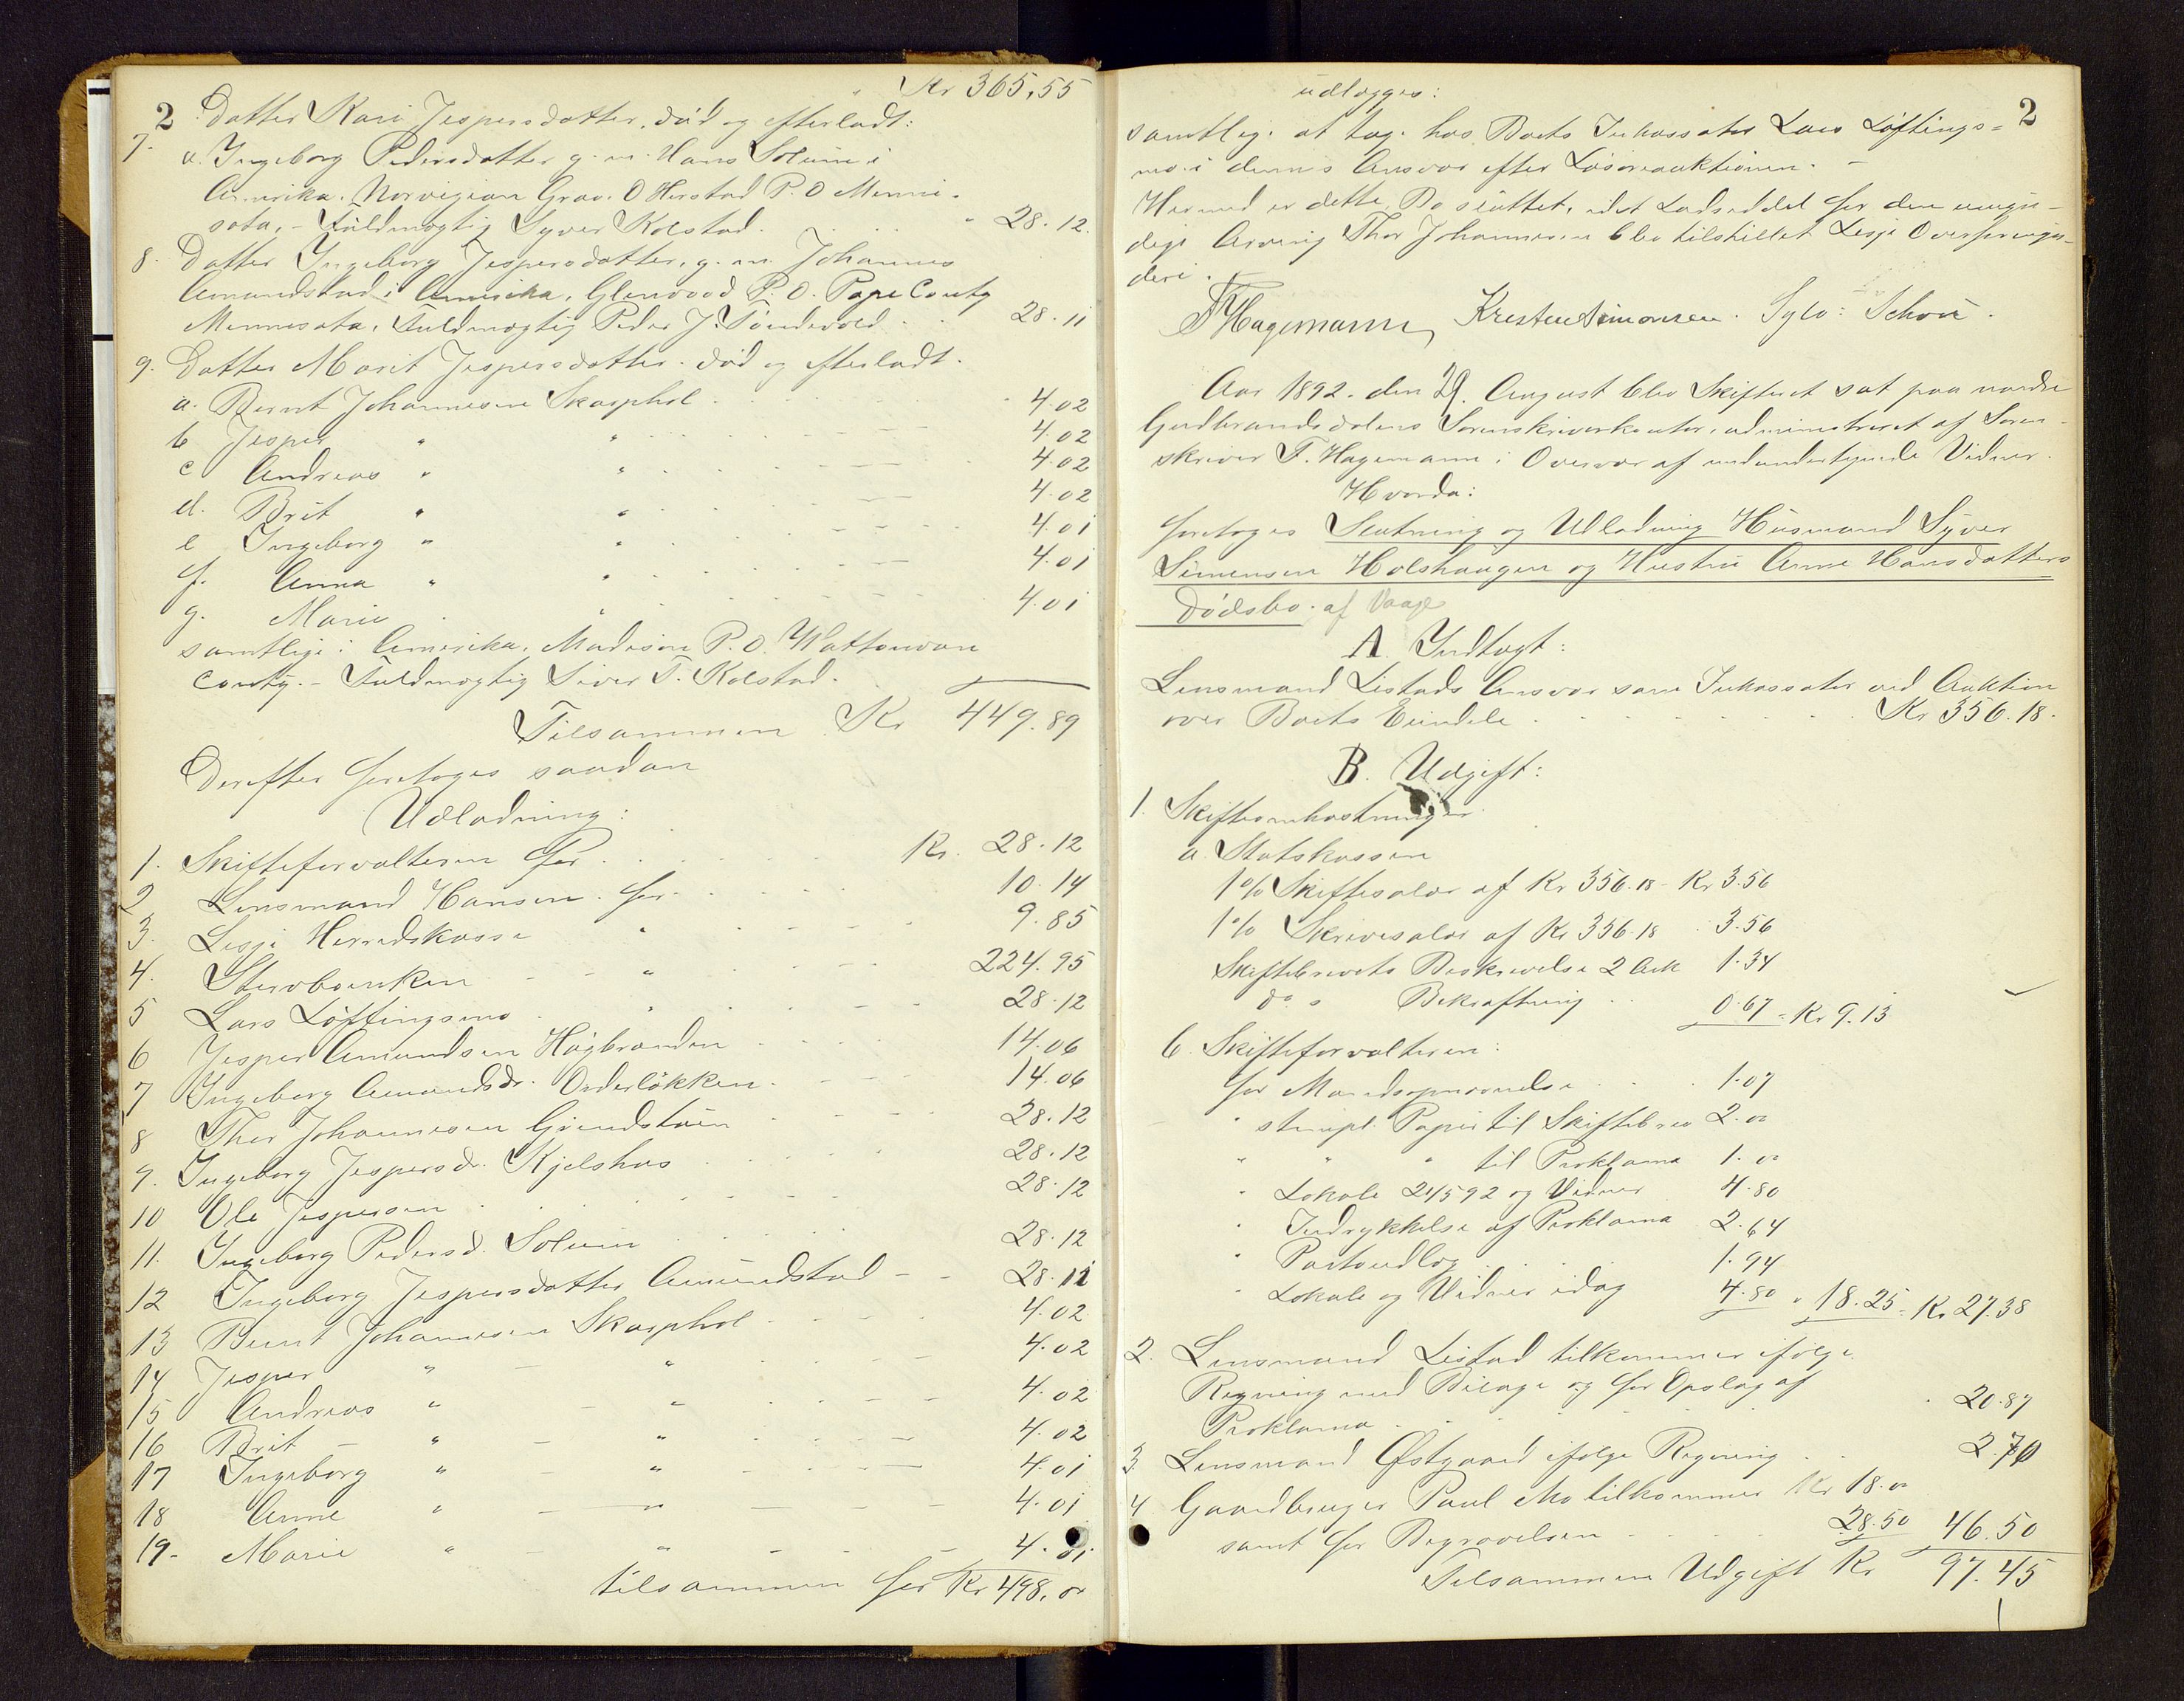 Kr 365,55
2 Datter Kari Jespersdatter, død og efterladt:
7. a. Ingeborg Pedersdatter g. m. Hans Solum i
Amerika. Norvegian Grov. O Herstad P. O Menni-
sota, - Fuldmægtig Syver Kolstad. " 28.12.
8. Datter Ingeborg Jespersdatter, g. m. Johannes
Amundstad i Amerika, Glenvood P. O. Pope Conty
Mennesota, Fuldmægtig Peder J. Tøndevold 28.11
9. Datter Marit Jespersdatter. død og efterladt.
a. Bernt Johannesen Skarphol . 4.02
b Jesper " " 4.02
c Andreas " " 4.02
d. Brit " " 4.02
e Ingeborg " " 4.01
f. Anna " " 4.01
g. Marie . " 4.01
samtlige i Amerika, Madison P. O. Wattonvan
Conty. - Fuldmægtig Siver T. Kolstad.
Tilsammen Kr 449.89
Derefter foretoges saadan
Udlodning:
1. Skifteforvalteren for . Kr. 28.12
2 Lensmand Hansen. for 10.14
3. Lesje Herredskasse " 9.85
4. Stervboenken " 224.95
5 Lars Løftingsmo " 28.12
6 Jesper Amundsen Høgbranden 14.06
7 Ingeborg Amundsdr. Orderløkken 14.06
8 Thor Johannesen Grindstuen 28.12
9. Ingeborg Jespersdr. Kjelshus 28.12
10 Ole Jespersen 28.12
11. Ingeborg Pedersd. Solum 28.12
12 Ingeborg Jespersdatter Amundstad - 28.11
13 Bernt Johannesen Skarphol 4.02
14 Jesper " - " 4.02
15 Andreas " " 4.02
16 Brit - " - " 4.02
17 Ingeborg " - " 4.01
18 Anne " - " 4.01
19. Marie " - " 4.01
tilsammen for Kr 498.00
udlægges: 2
samtlige at tage hos Boets Inkassator Lars Løftings=
mo i dennes Ansvar efter Løsøreauktionen. -
Hermed er dette Bo sluttet, idet Lodseddel for den umyn-
dige Arving Thor Johannesen blev tilstillet Lesje Overformyn-
deri.
T Hagemann, Kresten Simonsen. Sylv: Schou.
Aar 1892. den 29. August blev Skifteret sat paa nordre
Gudbrandsdalens Sorenskriverkontor, administreret af Soren-
skriver T. Hagemann i Overvær af medundertegnede Vidner.
Hvorda:
foretoges Slutning og Udlodning Husmand Syver
Simensen Holshaugen og Hustru Anne Hansdatters
Dødsbo. af Vaage
A Indtægt:
Lensmand Listads Ansvar som Inkassator ved Auktion
over Boets Eiendele Kr 356.18.
B. Udgift:
1. Skifteomkostninger
a. Statskassen
1% Skiftesalær af Kr 356.18 - Kr 3.56
1% Skrivesalær af Kr 356.18 3.56
Skiftebrevets Beskrivelse 2 Ark 1.34
do s Bekræftning 0.67 = Kr 9.13
b. Skifteforvalteren:
for Mandsopnævnelse 1.07
" stempl. Papir til Skiftebrev 2.00
" " " til Proklama 1.00
" Lokale 24/5 92 og Vidner 4.80
" Indrykkelse af Proklama 2.64
" Portoudlæg 1.94
" Lokale og Vidner idag 4.80 " 18.25 = Kr 27.38
2. Lensmand Listad tilkommer ifølge
Regning med Bilage og for Opslag af
Proklama 20.87
3. Lensmand Østgaard ifølge Regning 2.70
4 Gaardbruger Paul Mo tilkommer Kr 18.00
samt for Begravelsen 28.50 46.50
Tilsammen Udgift Kr 97.45